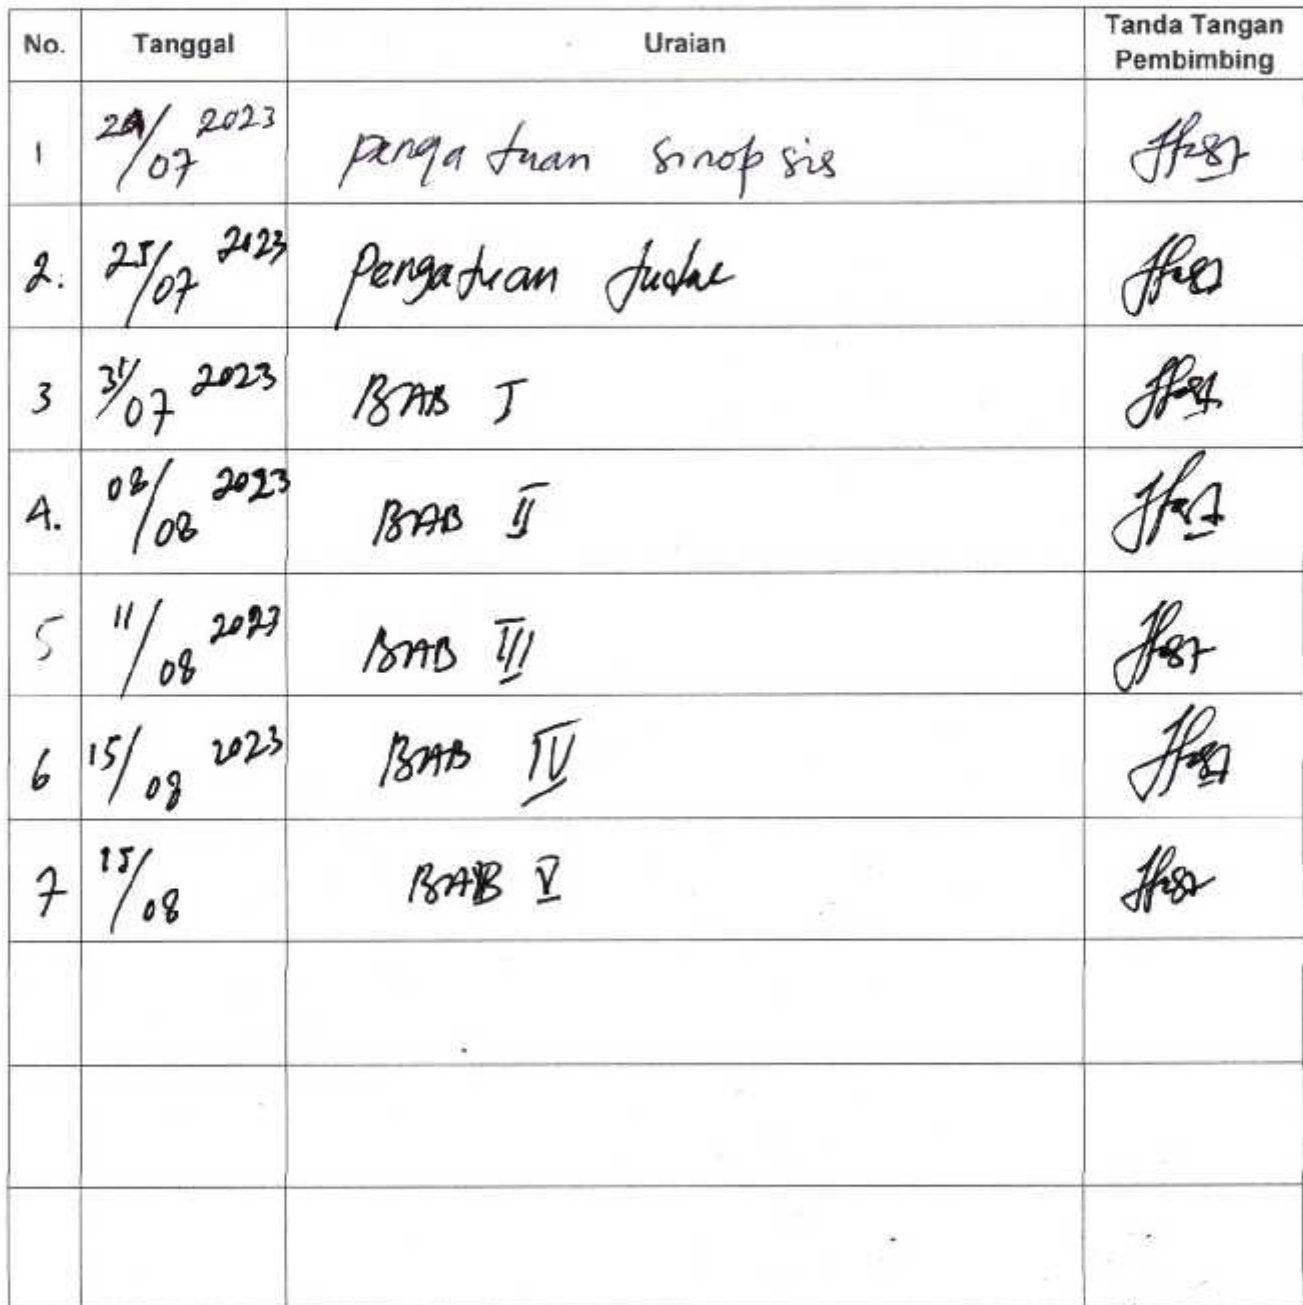 No. Tanggal Uraian Tanda Tangan Pembimbing
1 07 2023 pengajuan sinopsis
2. 25/07 2023 Pengajuan Judul
3 31/07 2023 BAB I
4. 08/08 2023 BAB II
5 11/08 2023 BAB III
6 15/08 2023 BAB IV
7 15/08 BAB V